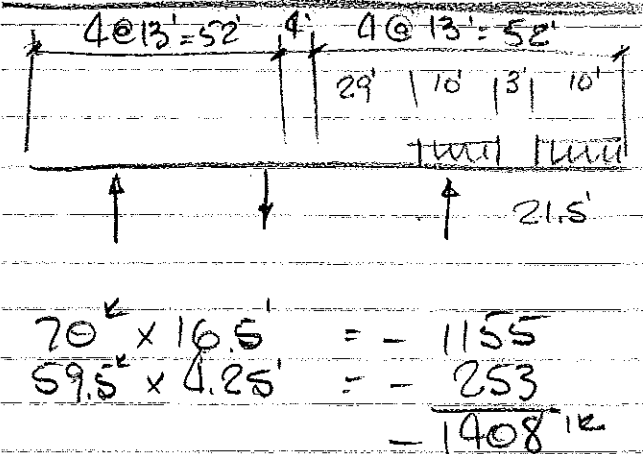 4@13'=52' 4' 4@13'=52'
29' 10' 3' 10'
21.5'
70ᵏ × 16.5' = - 1155
59.5ᵏ × 4.25' = - 253
- 1408 'ᵏ